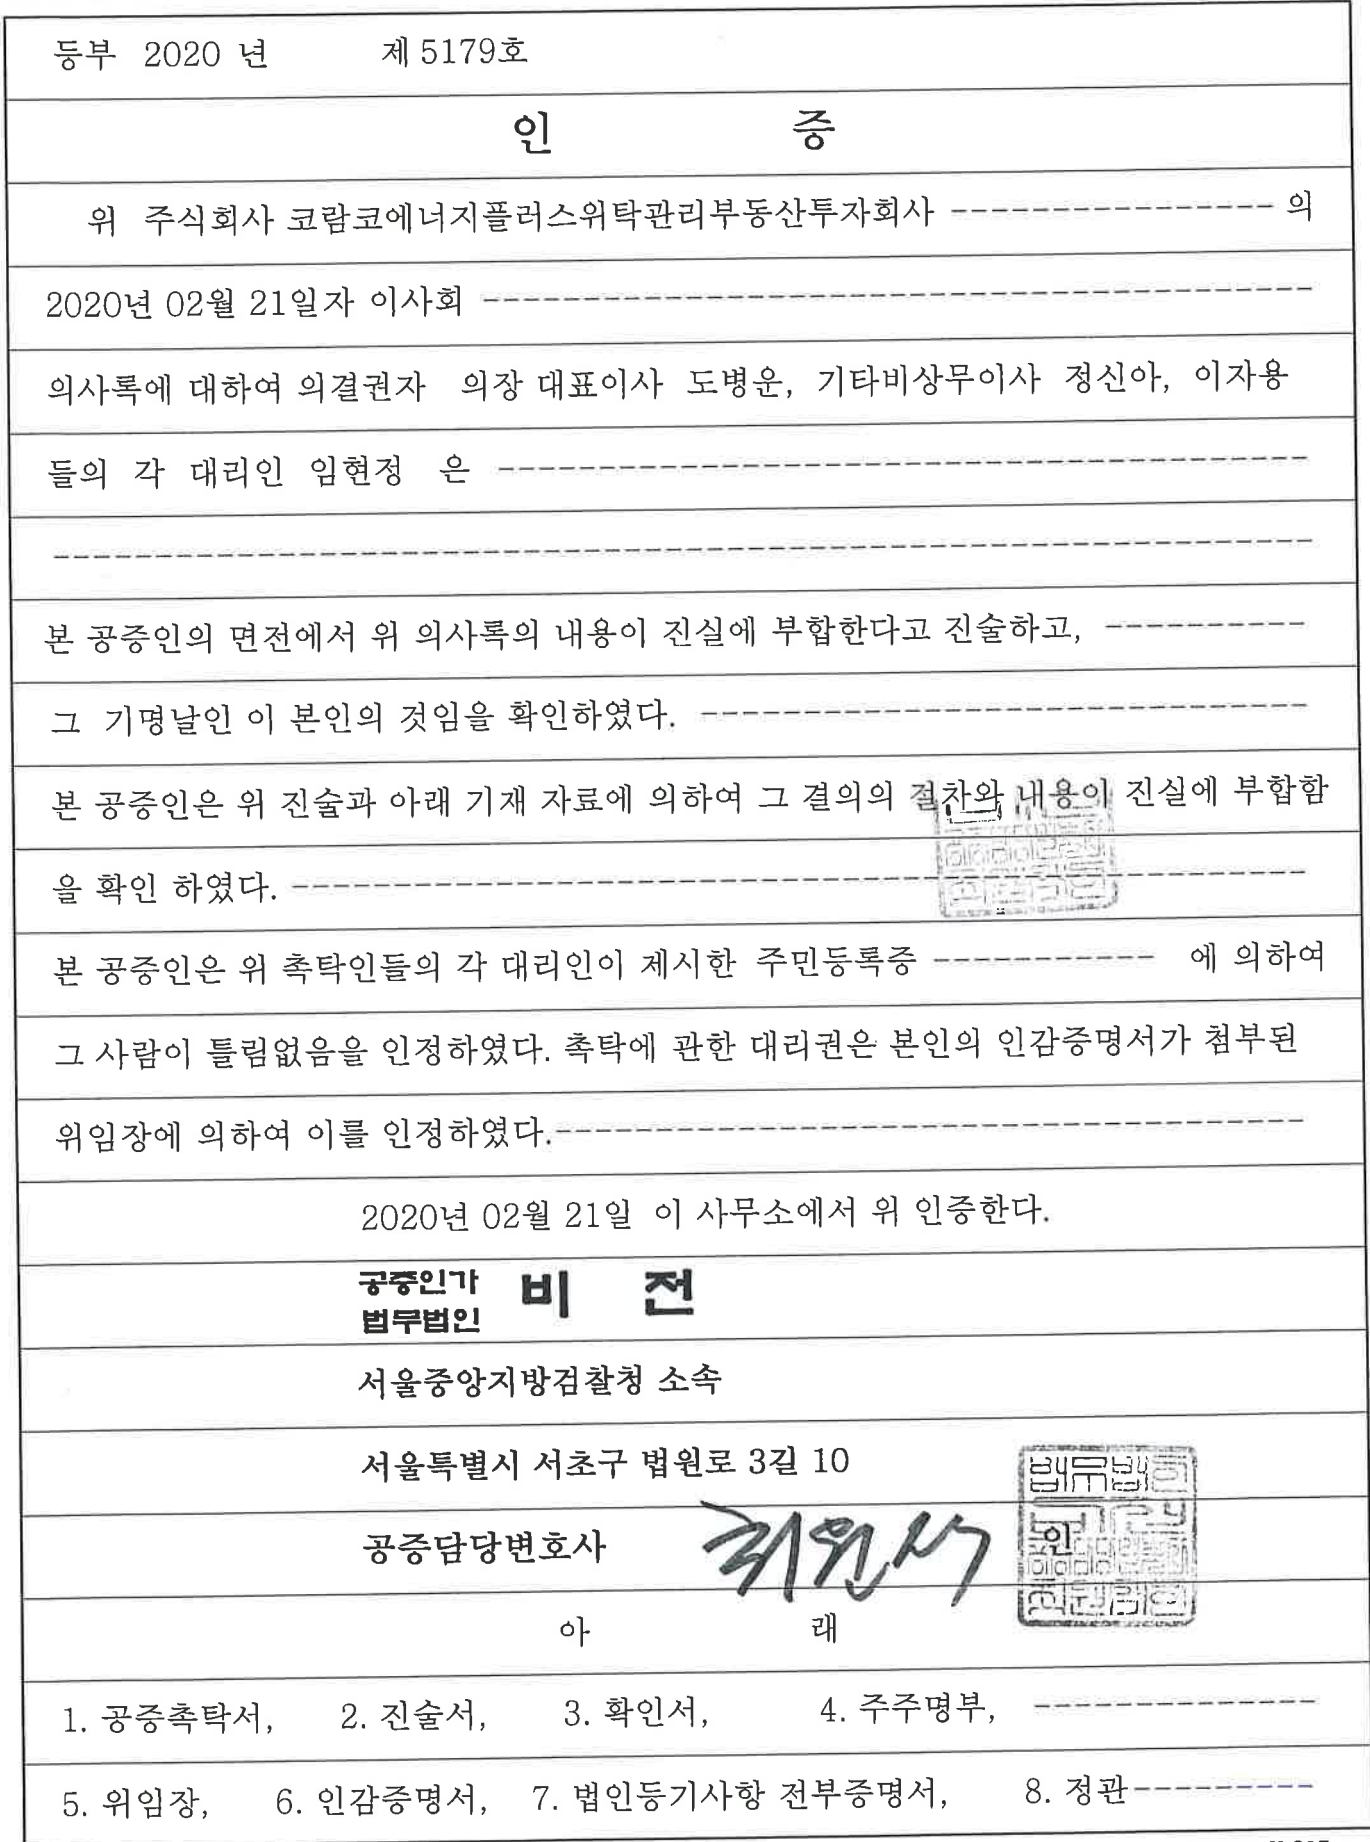 등부 2020 년 제 5179호
인 증
위 주식회사 코람코에너지플러스위탁관리부동산투자회사 ---------------- 의
2020년 02월 21일자 이사회 -----------------------------------------
의사록에 대하여 의결권자 의장 대표이사 도병운, 기타비상무이사 정신아, 이자용
들의 각 대리인 임현정 은 ----------------------------------------
---------------------------------------------------------------
본 공증인의 면전에서 위 의사록의 내용이 진실에 부합한다고 진술하고, ----------
그 기명날인 이 본인의 것임을 확인하였다. ------------------------------
본 공증인은 위 진술과 아래 기재 자료에 의하여 그 결의의 절차와 내용이 진실에 부합함
을 확인 하였다. --------------------------------------------------
본 공증인은 위 촉탁인들의 각 대리인이 제시한 주민등록증 ----------- 에 의하여
그 사람이 틀림없음을 인정하였다. 촉탁에 관한 대리권은 본인의 인감증명서가 첨부된
위임장에 의하여 이를 인정하였다.-------------------------------------
2020년 02월 21일 이 사무소에서 위 인증한다.
공증인가 법무법인 비 전
서울중앙지방검찰청 소속
서울특별시 서초구 법원로 3길 10
공증담당변호사 인
아 래
1. 공증촉탁서, 2. 진술서, 3. 확인서, 4. 주주명부, --------------
5. 위임장, 6. 인감증명서, 7. 법인등기사항 전부증명서, 8. 정관---------